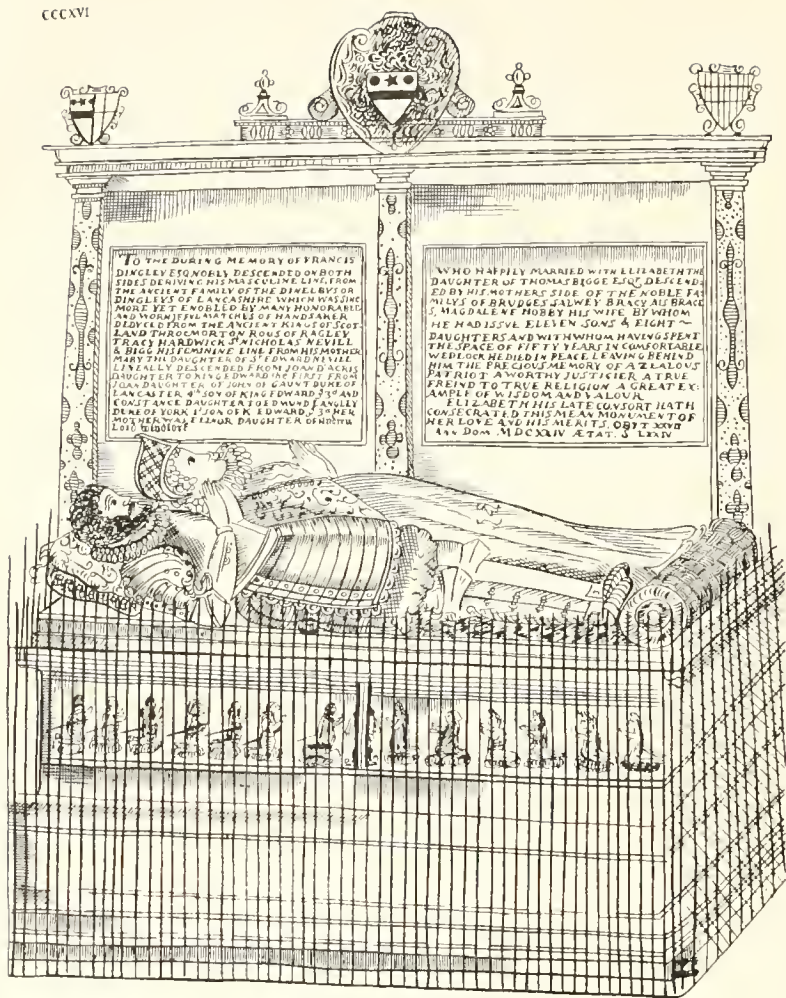 CCCXVI
TO THE DURING MEMORY OF FRANCIS
DINGLEY ESQ NOBLY DESCENDED ON BOTH
SIDES DERIVING HIS MASCULINE LINE, FROM
THE ANCIENT FAMILY OF THE DINELEYS OR
DINGLEYS OF LANCASHIRE WHICH WAS SINCE
MORE YET ENOBLED BY MANY HONORABLE
AND WORSHIPFUL MATCHES OF HANDSAKER
DEDVCED FROM THE ANCIENT KINGS OF SCOT-
LAND THROCMORTON ROUS OF RAGLEY
TRACY HARDWICK St NICHOLAS NEVILL
& BIGG HIS FEMININE LINE FROM HIS MOTHER
MARY THE DAUGHTER OF Sr EDWARD NEVILL
LINEALLY DESCENDED FROM JOAN D'ACRIS
DAUGHTER TO KING EDWARD the FIRST FROM
JOAN DAUGHTER OF JOHN OF GAUNT DUKE OF
LANCASTER 4th SON OF KING EDWARD ye 3d AND
CONSTANCE DAUGHTER TO EDMUND LANGLEY
DUKE OF YORK SON OF K EDWARD ye 3d HER
MOTHER WAS ELINOR DAUGHTER OF
Lord Windsore
WHO HAPPILY MARRIED WITH ELIZABETH THE
DAUGHTER OF THOMAS BIGGE ESQr DESCEND
ED BY HIS MOTHERS SIDE OF THE NOBLE FA
MILYS OF BRUDGES SALWEY BRACY ALIS BRACE
S, MAGDALENE HOBBY HIS WIFE BY WHOM
HE HAD ISSVE ELEVEN SONS & EIGHT ~
DAUGHTERS AND WITH WHOM HAVENG SPENT
THE SPACE OF FIFTY YEARS IN COMFORTABLE
WEDLOCK HE DIED IN PEACE LEAVING BEHIND
HIM THE PRECIOUS MEMORY OF A ZEALOUS
PATRIOT A WORTHY JUSTICER A TRUE
FREIND TO TRUE RELIGION A GREAT EX:
AMPLE OF WISDOM AND VALOUR
ELIZABETH HIS LATE CONSORT HATH
CONSECRATED THIS MEAN MONUMENT OF
HER LOVE AND HIS MERITS. OBYT XXVII
Ann DOM. MDCXXIV ÆTAT. S LXXIV